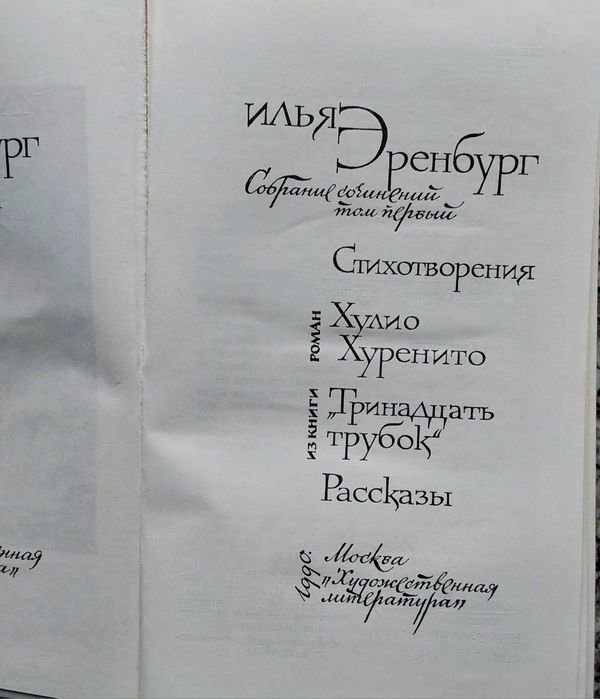 ург
нная
а"
илья
Эренбург
Собрание сочинений
том первый
Стихотворения
роман
Хулио
Хуренито
из книги
„Тринадцать
трубок“
Рассказы
1990.
Москва
„Художественная
литература"